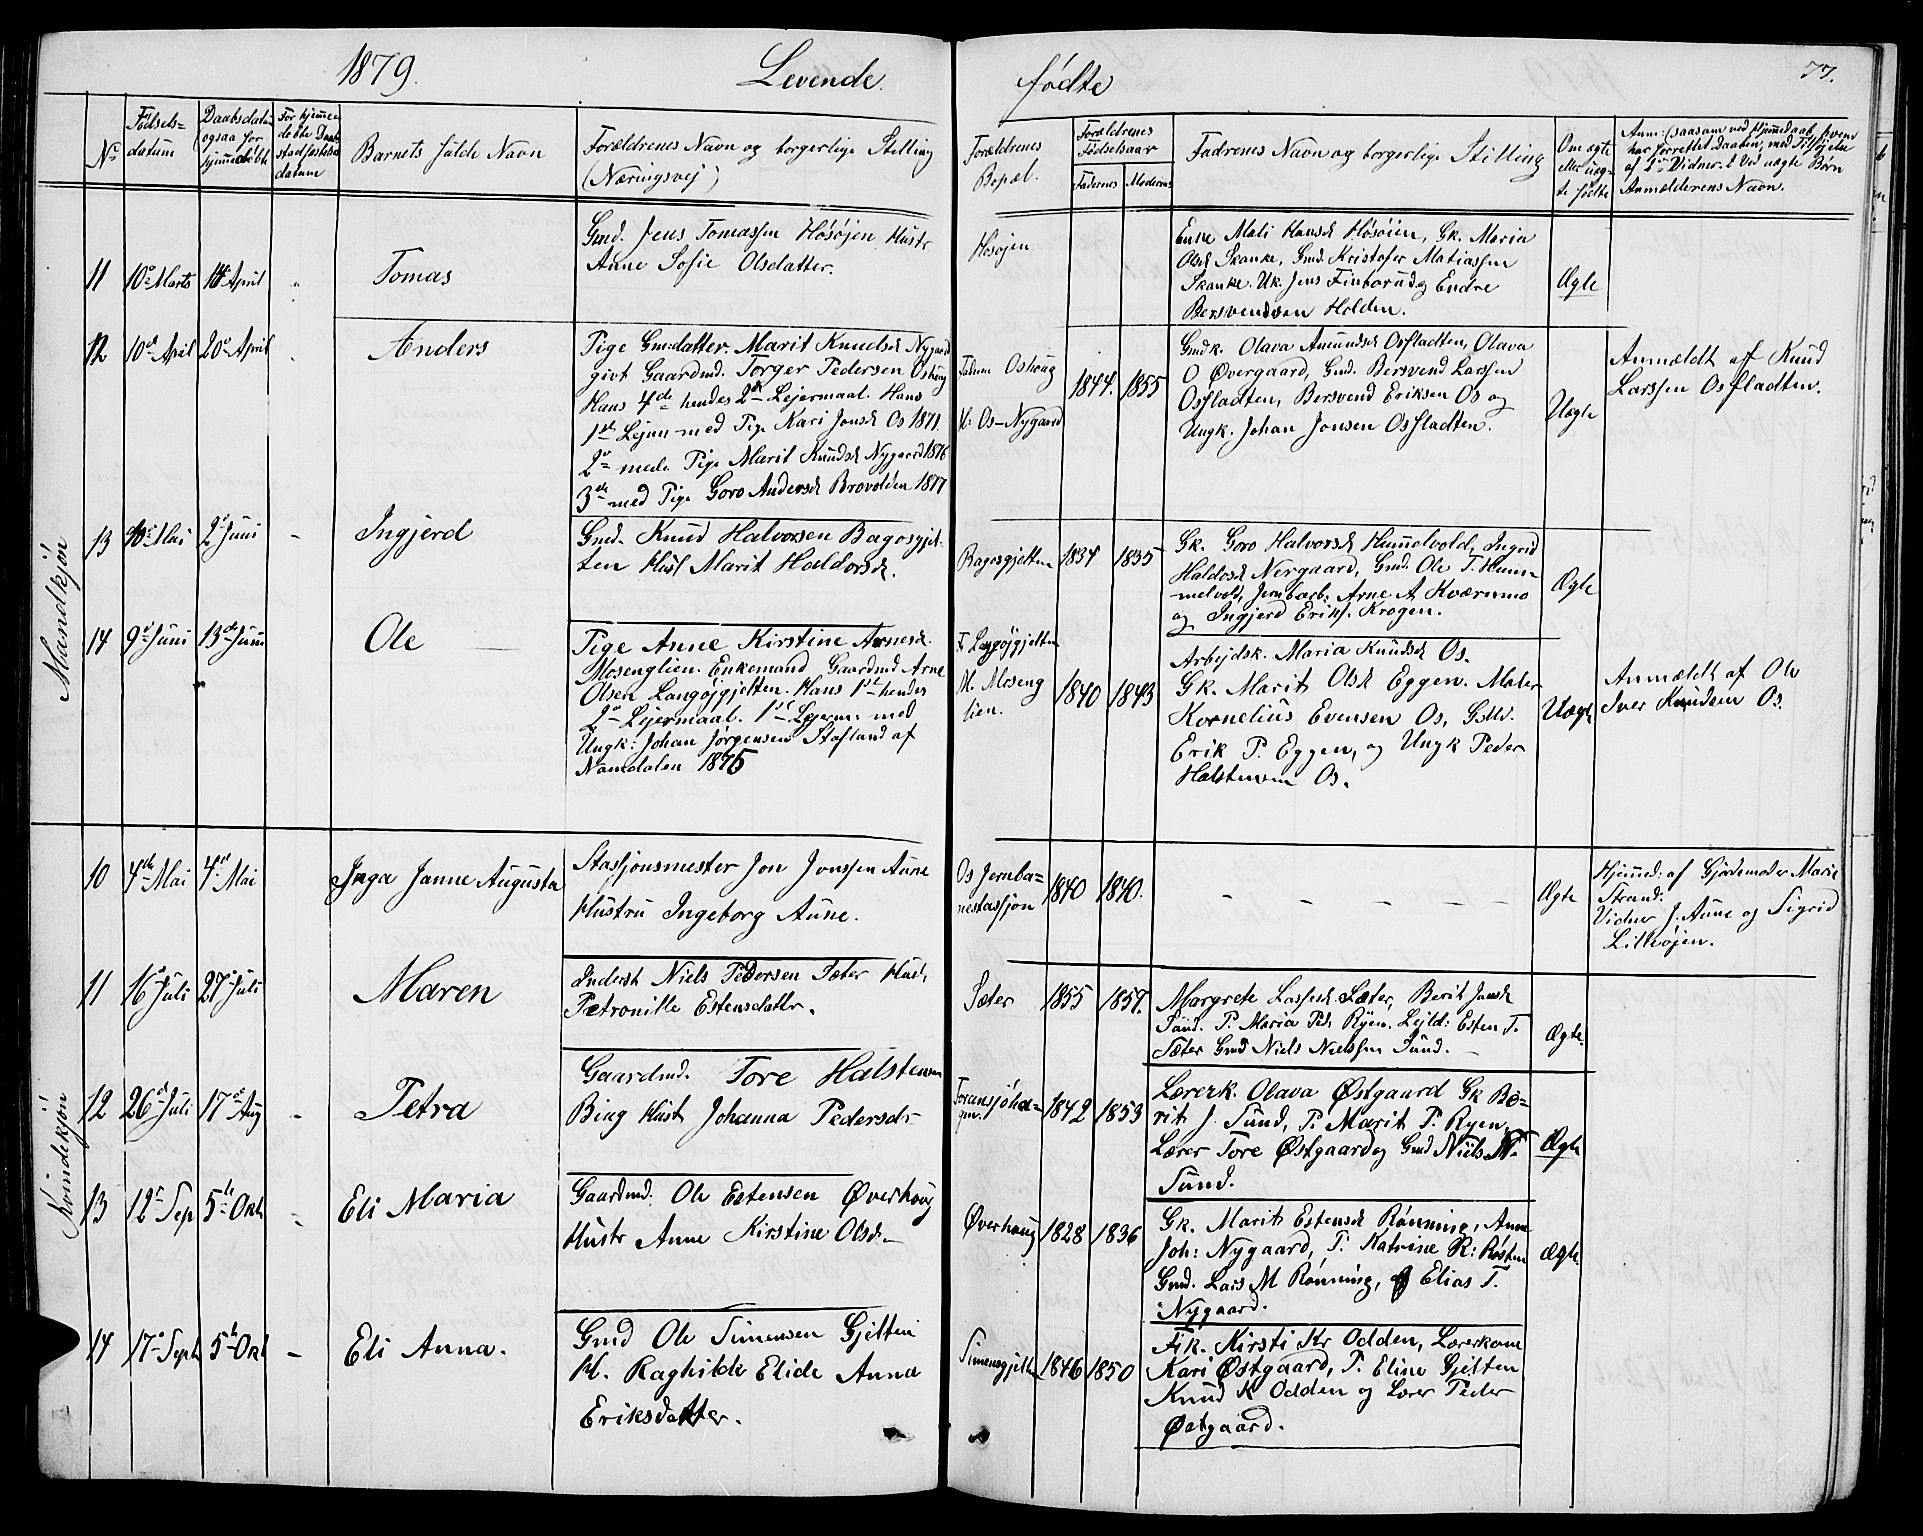 1879.
Levende
fødte
77.
No
Fødsels=
datum
Daabsdatum
(ogsaa for
hjemmedøbte
For hjemme
døbte Daab
stadfæstelses
datum
Barnets fulde Navn
Forældrenes Navn og borgerlige Stilling
(Næringsvej)
Forældrenes
Bopæl.
Forældrenes
Fødselsaar
Fadrenes
Modrenes
Fadrenes Navn og borgerlige Stilling
Om ægte
eller uæg-
te fødte
Anm: (saasom ved Hjemmedaab, hvem
har forrettet Daaben, med Tilføjelse
af 2de Vidner. Ved uægte Børn
Anmelderens Navn.
Mandkjøn
11
10de Marts
14 April
"
Tomas
Gmd. Jens Tomassen Høsøjen, Hustr
Anne Sofie Olsdatter.
Hosøjen
Enke Mali Hansd Høsøien, Gk. Maria
Olsd Skanke, Gmd. Kristofer Matiassen
Skanke. Uk. Jens Finborud og Endre
Bersvendsen Holden.
Ægte
12
10de April
20de April
Anders
Pige Gmdatter. Marit Knudsd Nygaard
givt Gaardmd. Torger Pedersen Oshoug
Hans 4de hendes 2den Lejermaal. Hans
1ste Lejrm med Pige Kari Jonsd Os 1871.
2den med Pige Marit Knudsd Nygaard 1876
3de med Pige Goro Andersd Brovolden 1877
Faderen Oshoug
M: Os-Nygaard
1844.
1855
Gmdk. Olava Amundsd Osfladten, Olava
O Øvergaard, Gmd. Bersvend Larssen
Osfladten, Bersvend Eriksen Os og
Ungk. Johan Jonsen Osfladten.
Uægte
Anmældt aff Knud
Larssen Osfladten.
13
10de Mai
2den Juni
-
Ingjerd
Gmd. Knud Halvorsen Bagosgjel-
ten Hust Marit Haldorsd.
Bagosgjelten
1834
1835
Gk. Goro Halvorsd Hummelvold, Ingrid
Haldosd Nergaard, Gmd. Ole T. Hum-
melvold, Jernbarb: Arne A Kværnmo
og Ingjerd Eriks. Krogen.
Ægte
14
9de Juni
13de Juni
Ole
Pige Anne Kirstine Arnesd.
Mosenglien. Enkemand Gaardmd Arne
Olsen Langøjgjelten. Hans 1ste hendes
2den Lejermaal. 1ste Lejerm. med
Ungk: Johan Jørgensen Stafland af
Namdalen 1875
F. Langøjgjelten
M. Moseng
lien.
1840
1843
Arbejdsk. Maria Knudsd Os.
Gk. Marit Olsd Eggen. Maler
Kornelius Evensen Os, Gmd.
Erik P. Eggen, og Ungk Peder
Halstensen Os.
Uægte
Anmældt af Ole
Iver Knudsen Os.
Kvindekjøn
10
4de Mai
4de Mai
Inga Janne Augusta
Stasjonsmester Jon Jonssen Aune
Hustru Ingeborg Aune.
Os Jernba=
nestasjon
1840
1840.
- - - - - -
Ægte
Hjemmed: af Gjordemoder Marie
Strand.
Vidner J. Aune og Sigrid
Litlhøjen.
11
16de Juli
27de Juli
Maren
Inderst Niels Pedersen Sæter Hust,
Petronille Estensdattr.
Sæter
1855
1857.
Margrete Lassesd. Sæter, Berit Jansd
Sund. P. Maria Peds Ryen. Lejld: Esten T.
Sæter Gmd Niels Nielssen Sund.
Ægte.
12
26de Juli
17de Aug
-
Petra
Gaardmd. Tore Halstensen
Bing Hust Johanna Pedersd-
1842
1853
Lærerk. Olava Østgaard Gk Be-
rit J. Sund, P. Marit P. Ryen,
Lærer Tore Østgaard og Gmd Niels N.
Sund.
Ægte
13
12te Sep
5te Okt
-
Eli Maria
Gaardmd. Ole Estensen Øverhoug
Hustr Anne Kirstine Olsd.
Øverhoug
1828
1836
Gk. Marit Estensd Rønning, Anne
Joh: Nygaard, P. Katrine R: Røsten
Gmd. Lars M Rønning, og Elias T.
Nygaard.
Ægte
14
17de Sept
5te Okt
-
Eli Anna.
Gmd Ole Simensen Gjelten
H. Raghilde Elide Anna
Eriksdatter.
Simensgjelten
1846
1850
Fik. Kirsti Kr Odden, Lærerkone
Kari Østgaard, P. Eline Gjelten
Knud K Odden og Lærer Peder
Østgaard.